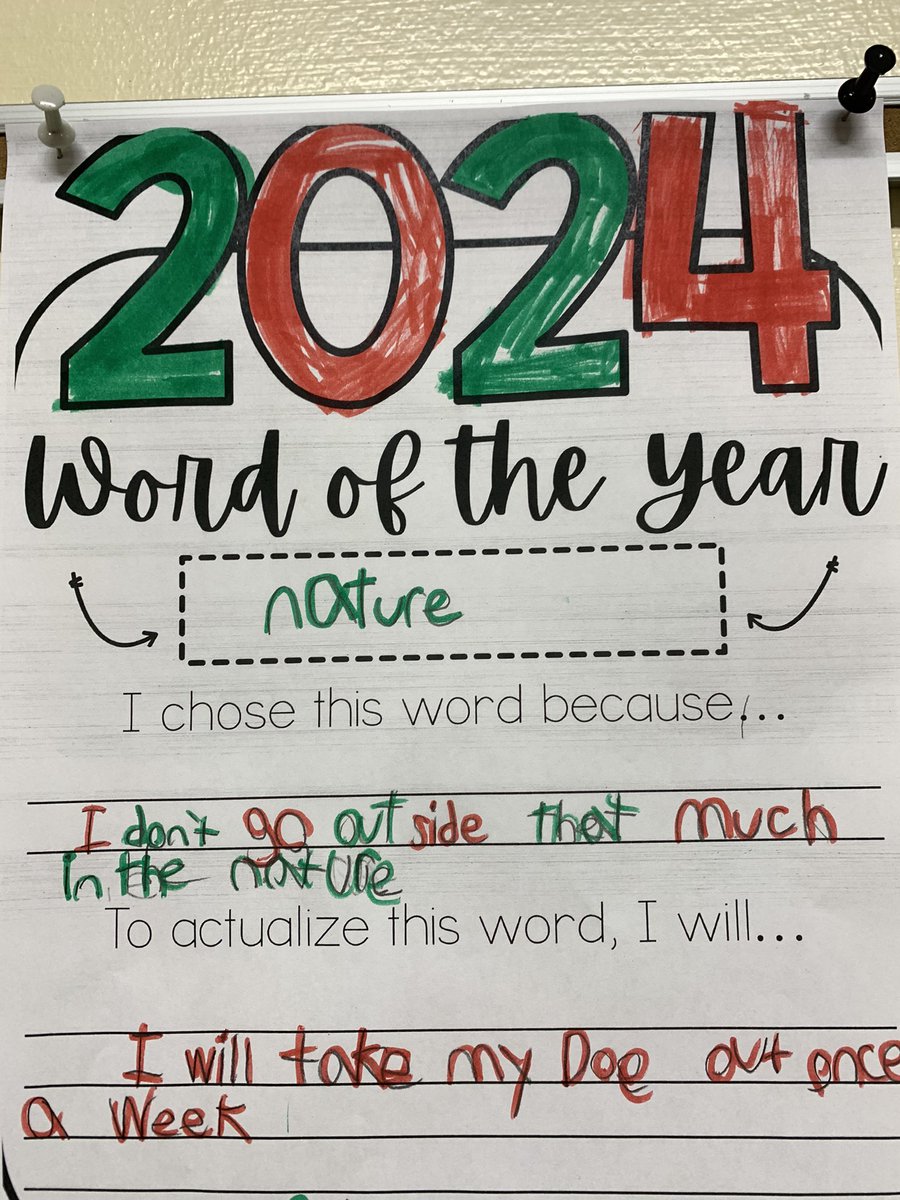 2024
Word of the Year
nature
I chose this word because...
I don't go out side that much
In the nature
To actualize this word, I will...
I will take my Dog out once
a Week